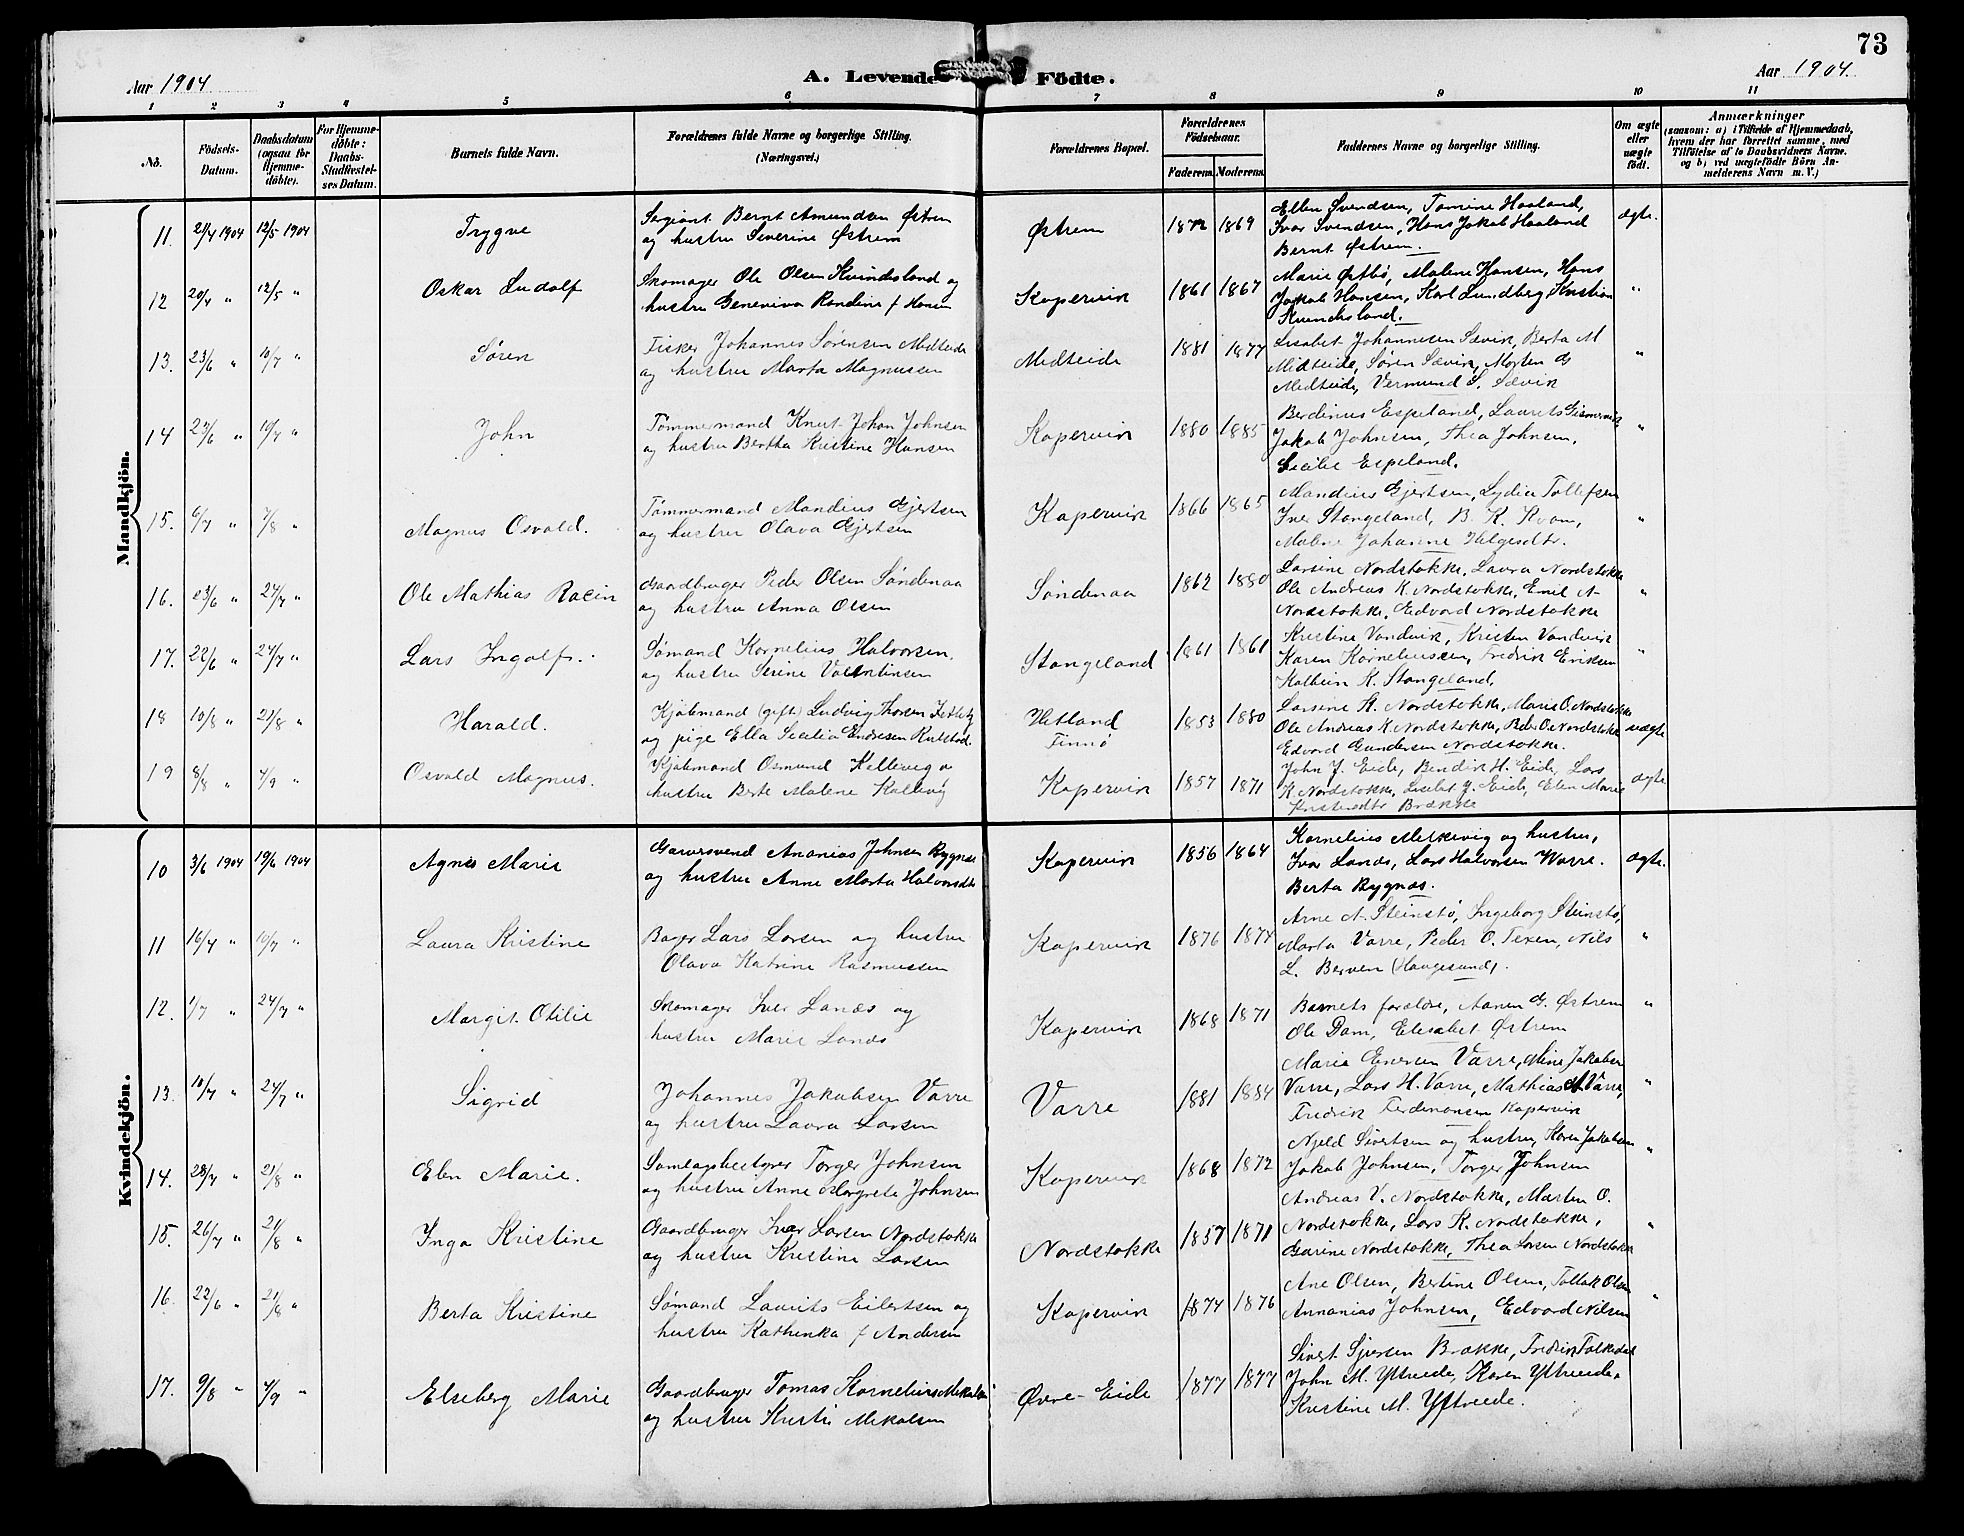 73
Aar 1904
A. Levende Födte.
Aar 1904.
1 2 3 4 5 6 7 8 9 10 11
No.
Födsels-Datum.
Daabsdatum (ogsaa for Hjemme-döbte).
For Hjemme-döbte: Daabs-Stadfæstel-ses Datum.
Barnets fulde Navn.
Forældrenes fulde Navne og borgerlige Stilling. (Næringsvei.)
Forældrenes Bopæl.
Forældrenes Födselsaar.
Faderens. Moderens.
Faddernes Navne og borgerlige Stilling.
Om ægte eller uægte födt.
Anmærkninger
(saasom: a) i Tilfælde af Hjemmedaab, hvem der har forrettet samme, med Tilföielse af to Daabsvidners Navne. og b) ved uægtefödte Börn An-melderens Navn m. V.)
Mandkjön.
11. 21/4 1904 12/5 1904 Trygve
Sergiant Bernt Amundsen Østrem
og hustru Severine Østrem
Østrem 1872 1869
Ellen Svendsen, Tomine Haaland,
Ivar Svendsen, Hans Jakob Haaland
Bernt Østrem.
ægte.
12 20/4 " 12/5 " Oskar Ludolf
Skomager Ole Olsen Kvindesland og
hustru Geneviva Randine f Hansen
Kopervik 1861 1867
Marie Østbö, Malene Hansen, Hans
Jakob Hansen, Karl Lundberg, Kristian
Kvindesland.
"
13. 23/6 " 10/7 " Søren
Fisker Johannes Sørensen Medteide
og hustru Marta Magnussen
Medteide 1881 1877
Lisabet Johannesen Sævik, Berta M
Midteide, Søren Sævik, Morten G
Medteide, Vermund S. Sævik
"
14 23/6 " 10/7 " John
Tømmermand Knut Johan Johnsen
og hustru Bertha Kristine Hansen
Kopervik 1880 1885
Berdinus Espeland, Laurets
Jakob Johnsen, Thea Johnsen,
Secilie Espeland.
"
15. 6/7 " 7/8 " Magnus Osvald.
Tømmermand Mandius Gjertsen
og hustru Olava Gjertsen
Kopervik 1866 1865
Mandius Gjertsen, Lydia Tollefsen
Iver Stangeland, B. K. Kvam,
Malene Johanne Helgesdtr.
"
16. 23/6 " 24/7 " Ole Mathias Racin
Gaardbruger Peder Olsen Søndenaa
og hustru Anna Olsen
Søndenaa 1862 1880
Larsine Nordstokke, Laura Nordstokke
Ole Andreas K. Nordstokke, Emil A
Nordstokke, Edvard Nordstokke
"
17. 22/6 " 24/7 " Lars Ingolf.
Sømand Kornelius Halvorsen,
og hustru Serine Valentinsen
Stangeland 1861 1861
Kristine Vandvik, Kristen Vandvik
Karen Korneliussen, Fredrik Eriksen
Kolbein K. Stangeland,
"
18 10/8 " 21/8 " Harald.
Kjøbmand (gift) Ludvig Thorsen
og pige Ella Secilia Endresen
Hetland
Finnö
1853 1880
Larsine K. Nordstokke, Marie O. Nordstokke
Ole Andreas K. Nordstokke, Peder O. Nordstokke
Edvard Gundersen Nordstokke.
uægte
19 8/8 " 4/9 " Osvald Magnus.
Kjøbmand Osmund Kallevig og
hustru Berte Malene Kallevig
Kopervik 1857 1871
John J. Eide, Bendik H. Eide, Lars
K. Nordstokke, Lisabet J. Eide, Elen Marie
Brække
ægte
Kvindekjön.
10 3/6 1904 19/6 1904 Agnes Marie
Garversvend Ananias Johnsen Bygnes
og hustru Anne Marta Halvorsdtr
Kopervik 1856 1864
Kornelius Melkevig og hustru,
Ivar Lands, Lars Halvorsen Varre.
Berta Bygnæs.
ægte.
11 16/4 " 10/7 " Laura Kristine
Bager Lars Larsen og hustru
Olava Katrine Rasmussen
Kopervik 1876 1874
Arne A. Steinstø, Ingeborg Steinstø,
Marta Varre, Peder O. Texen, Nils
L. Berven (Haugesund).
"
12. 1/7 " 24/7 " Margit Otilie
Skomager Iver Lands og
hustru Marie Lands
Kopervik 1868 1871
Barnets foraldre, Aanen G. Østrem
Ole Dam, Elisabet Østrem
"
13. 10/7 " 24/7 " Sigrid
Johannes Jakobsen Varre
og hustru Laura Larsen
Varre 1881 1884
Marie Enersen Varre, Mine Jakobsen
Varre, Lars H. Varre, Mathias A Varre,
Fredrik Ferdinansen Kopervik
"
14. 28/7 " 21/8 " Elen Marie.
Samlagsbestyrer Torger Johnsen
og hustru Anne Margrete Johnsen
Kopervik 1868 1872
Njeld Sivertsen og hustru, Karen Jakobsen
Jakob Johnsen, Torger Johnsen
"
15. 26/7 " 21/8 " Inga Kristine
Gaardbruger Ivar Larsen Nordstokke
og hustru Kristine Larsen
Nordstokke 1857 1871
Andreas V. Nordstokke, Marten O.
Nordstokke, Lars K. Nordstokke,
Garine Nordstokke, Thea Larsen Nordstokke
"
16. 22/6 " 21/8 " Berta Kristine
Sømand Laurits Eilertsen og
hustru Kathinka f Andersen
Kopervik 1874 1876
Ane Olsen, Bertine Olsen, Tollak Olsen
Annanias Johnsen, Edvard Nilsen
"
17. 9/8 " 4/9 " Elseberg Marie
Gaardbruger Tomas Kornelius Mikalsen
og hustru Kristi Mikalsen
Øvre-Eide 1877 1877
Sivert Sjursen Brække, Fredrik Falkedal
John M. Ytreeide, Karen Ytreeide,
Kristine M. Ytreeide.